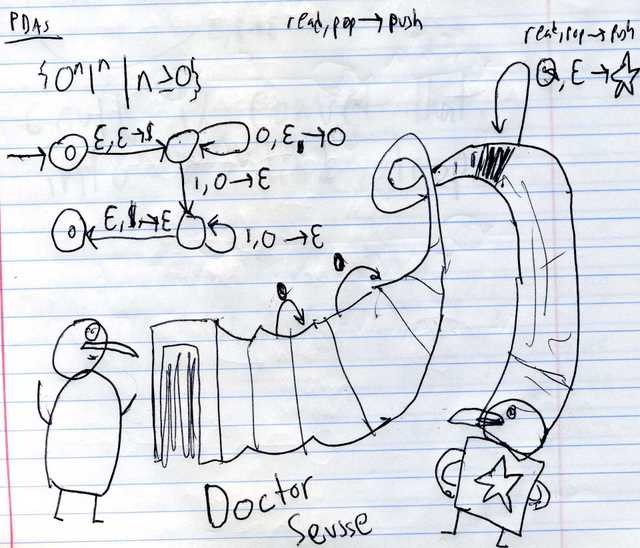 PDAs
read, pop → push
read, pop → push
{0ⁿ1ⁿ | n ≥ 0}
ε → ☆
ε, ε → $
0, ε → 0
1, 0 → ε
ε, $ → ε
1, 0 → ε
Doctor
Seusse